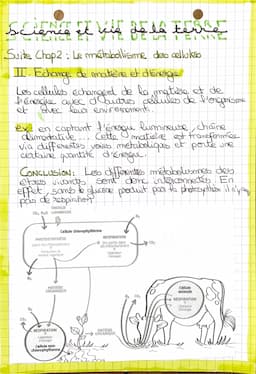 SCIENCE ET VIE DE LA TERRE
science et vie de la terre
Suite Chap 2 : Le métabolisme des cellules
II. Echange de matière et d'énergie
Les cellules échangent de la matière et de
l'énergie avec d'autres cellules de l'organisme
et avec leur environnement.
Ex: en captant l'énergie lumineuse, chaîne
alimentaire... Cette matière est transformée
via différentes voies métaboliques et porte une
certaine quantité d'énergie.
CONCLUSION: Les différents métabolismes des
êtres vivants sont donc interconnectés. En
effet, sans le glucose produit par la photosynthèse il n'y a
pas de respiration
ÉNERGIE
LUMINEUSE
CO₂, H₂O
Cellule chlorophyllienne
PHOTOSYNTHÈSE
RESPIRATION
O₂
CO₂
MATIÈRE
ORGANIQUE
Cellule
animale
RESPIRATION
O₂
CO₂
RESPIRATION
Cellule non
chlorophyllienne
MATIÈRE
ORGANIQUE